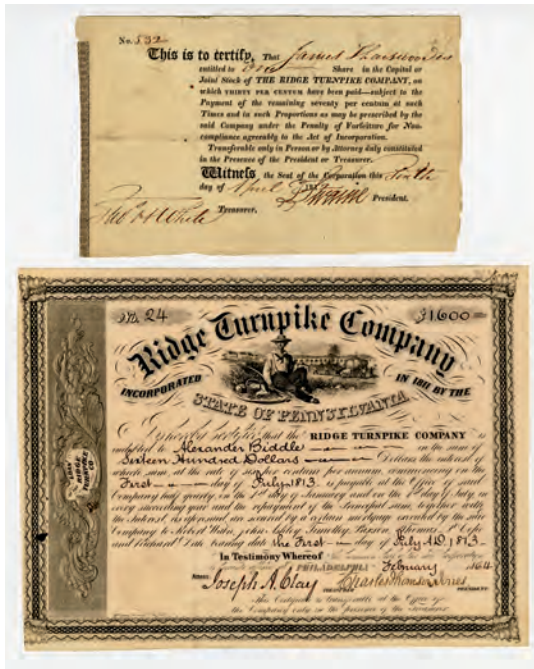 No. 532
This is to certify, That James
entitled to One Share in the Capital or
Joint Stock of THE RIDGE TURNPIKE COMPANY, on
which THIRTY PER CENTUM have been paid—subject to the
Payment of the remaining seventy per centum at such
Times and in such Proportions as may be prescribed by the
said Company under the Penalty of Forfeiture for Non-
compliance agreeably to the Act of Incorporation.
Transferable only in Person or by Attorney duly constituted
in the Presence of the President or Treasurer.
Witness, the Seal of the Corporation this Tenth
day of April
President.
White Treasurer.
No. 24 $1600
Ridge Turnpike Company
INCORPORATED IN 1811 BY THE
STATE OF PENNSYLVANIA
SEAL RIDGE TURNPIKE CO
It is hereby certified that the RIDGE TURNPIKE COMPANY is
indebted to Alexander Biddle in the sum of
Sixteen Hundred Dollars Dollars, the interest of
which sum at the rate of six per centum per annum, commencing on the
First day of July 1813. is payable at the Office of said
Company half yearly, on the 1st day of January and on the 1st day of July, in
every succeeding year and the repayment of the Principal sum, together with
the Interest, as aforesaid, are secured by a certain mortgage executed by the said
Company to Robert Wain, John Ashley, Timothy Paxson, Thomas P. Cope
and Richard Dale bearing date the First day of July A.D. 1813.
In Testimony Whereof
PHILADELPHIA February 164
Joseph A. Clay Charles Thomson Jones
TREASURER PRESIDENT
This Certificate is transferable at the Office of
the Company only in the presence of the Treasurer